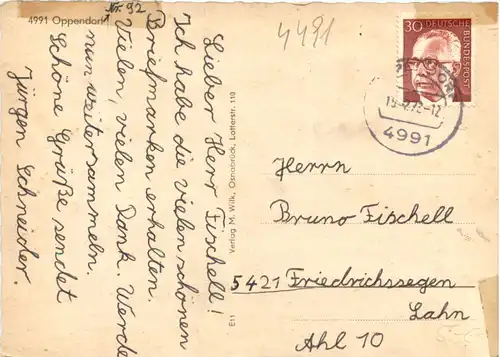 4991 Oppendorf
Nr. 92
Lieber Herr Fischell!
Ich habe die vielen schönen
Briefmarken erhalten.
Vielen, vielen Dank. Werde
nun weitersammeln.
Schöne Grüße sendet
Jürgen Schneider.
Verlag M. Wilk, Osnabrück, Lotterstr. 118
E11
4491
30 DEUTSCHE
BUNDESPOST
4991
Herrn
Bruno Fischell
5421 Friedrichssegen
Lahn
Ahl 10